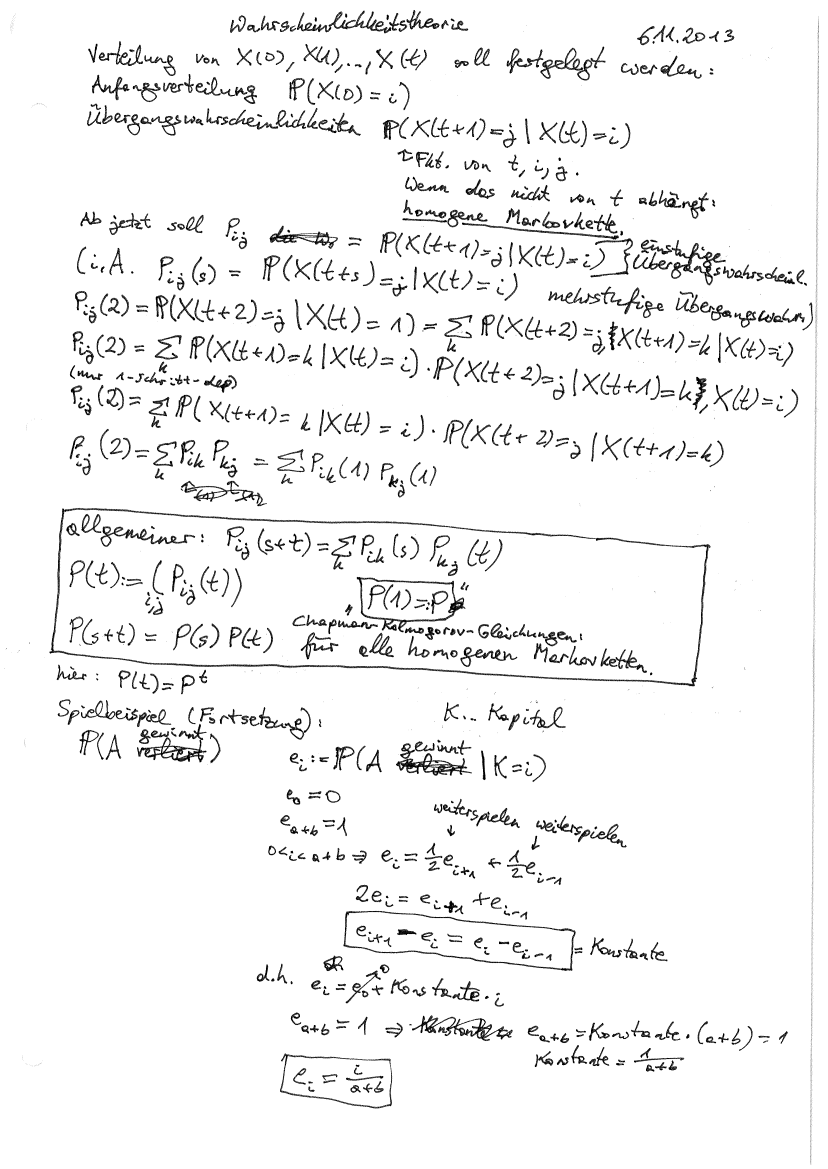 Wahrscheinlichkeitstheorie
6.11.2013
Verteilung von X(0), X(1), .., X(t) soll festgelegt werden:
Anfangsverteilung ℙ(X(0)=i)
Übergangswahrscheinlichkeiten ℙ(X(t+1)=j | X(t)=i)
↑Fkt. von t, i, j.
Wenn das nicht von t abhängt:
homogene Markovkette.
Ab jetzt soll P_ij = ℙ(X(t+1)=j | X(t)=i) } einstufige Übergangswahrscheinl.
(i.A. P_ij(s) = ℙ(X(t+s)=j | X(t)=i) mehrstufige Übergangswahrs.)
P_ij(2) = ℙ(X(t+2)=j | X(t)=1) = ∑_k ℙ(X(t+2)=j, X(t+1)=k | X(t)=i)
P_ij(2) = ∑_k ℙ(X(t+1)=k | X(t)=i) · ℙ(X(t+2)=j | X(t+1)=k, X(t)=i)
(nur 1-Schritt-dep)
P_ij(2) = ∑_k ℙ(X(t+1)=k | X(t)=i) · ℙ(X(t+2)=j | X(t+1)=k)
P_ij(2) = ∑_k P_ik P_kj = ∑_k P_ik(1) P_kj(1)
allgemeiner: P_ij(s+t) = ∑_k P_ik(s) P_kj(t)
P(t) := (P_ij(t))_i,j P(1)=:P
P(s+t) = P(s) P(t) "Chapman-Kolmogorov-Gleichungen:"
für alle homogenen Markovketten.
hier: P(t)=P^t
Spielbeispiel (Fortsetzung): K... Kapital
ℙ(A gewinnt) e_i := ℙ(A gewinnt | K=i)
e_0 = 0
e_a+b = 1
weiterspielen weiterspielen
↓ ↓
0<i<a+b ⇒ e_i = 1/2 e_i+1 + 1/2 e_i-1
2e_i = e_i+1 + e_i-1
e_i+1 - e_i = e_i - e_i-1 = Konstante
d.h. e_i = e_0 ↗0 + Konstante · i
e_a+b = 1 ⇒ e_a+b = Konstante · (a+b) = 1
Konstante = 1/(a+b)
e_i = i/(a+b)